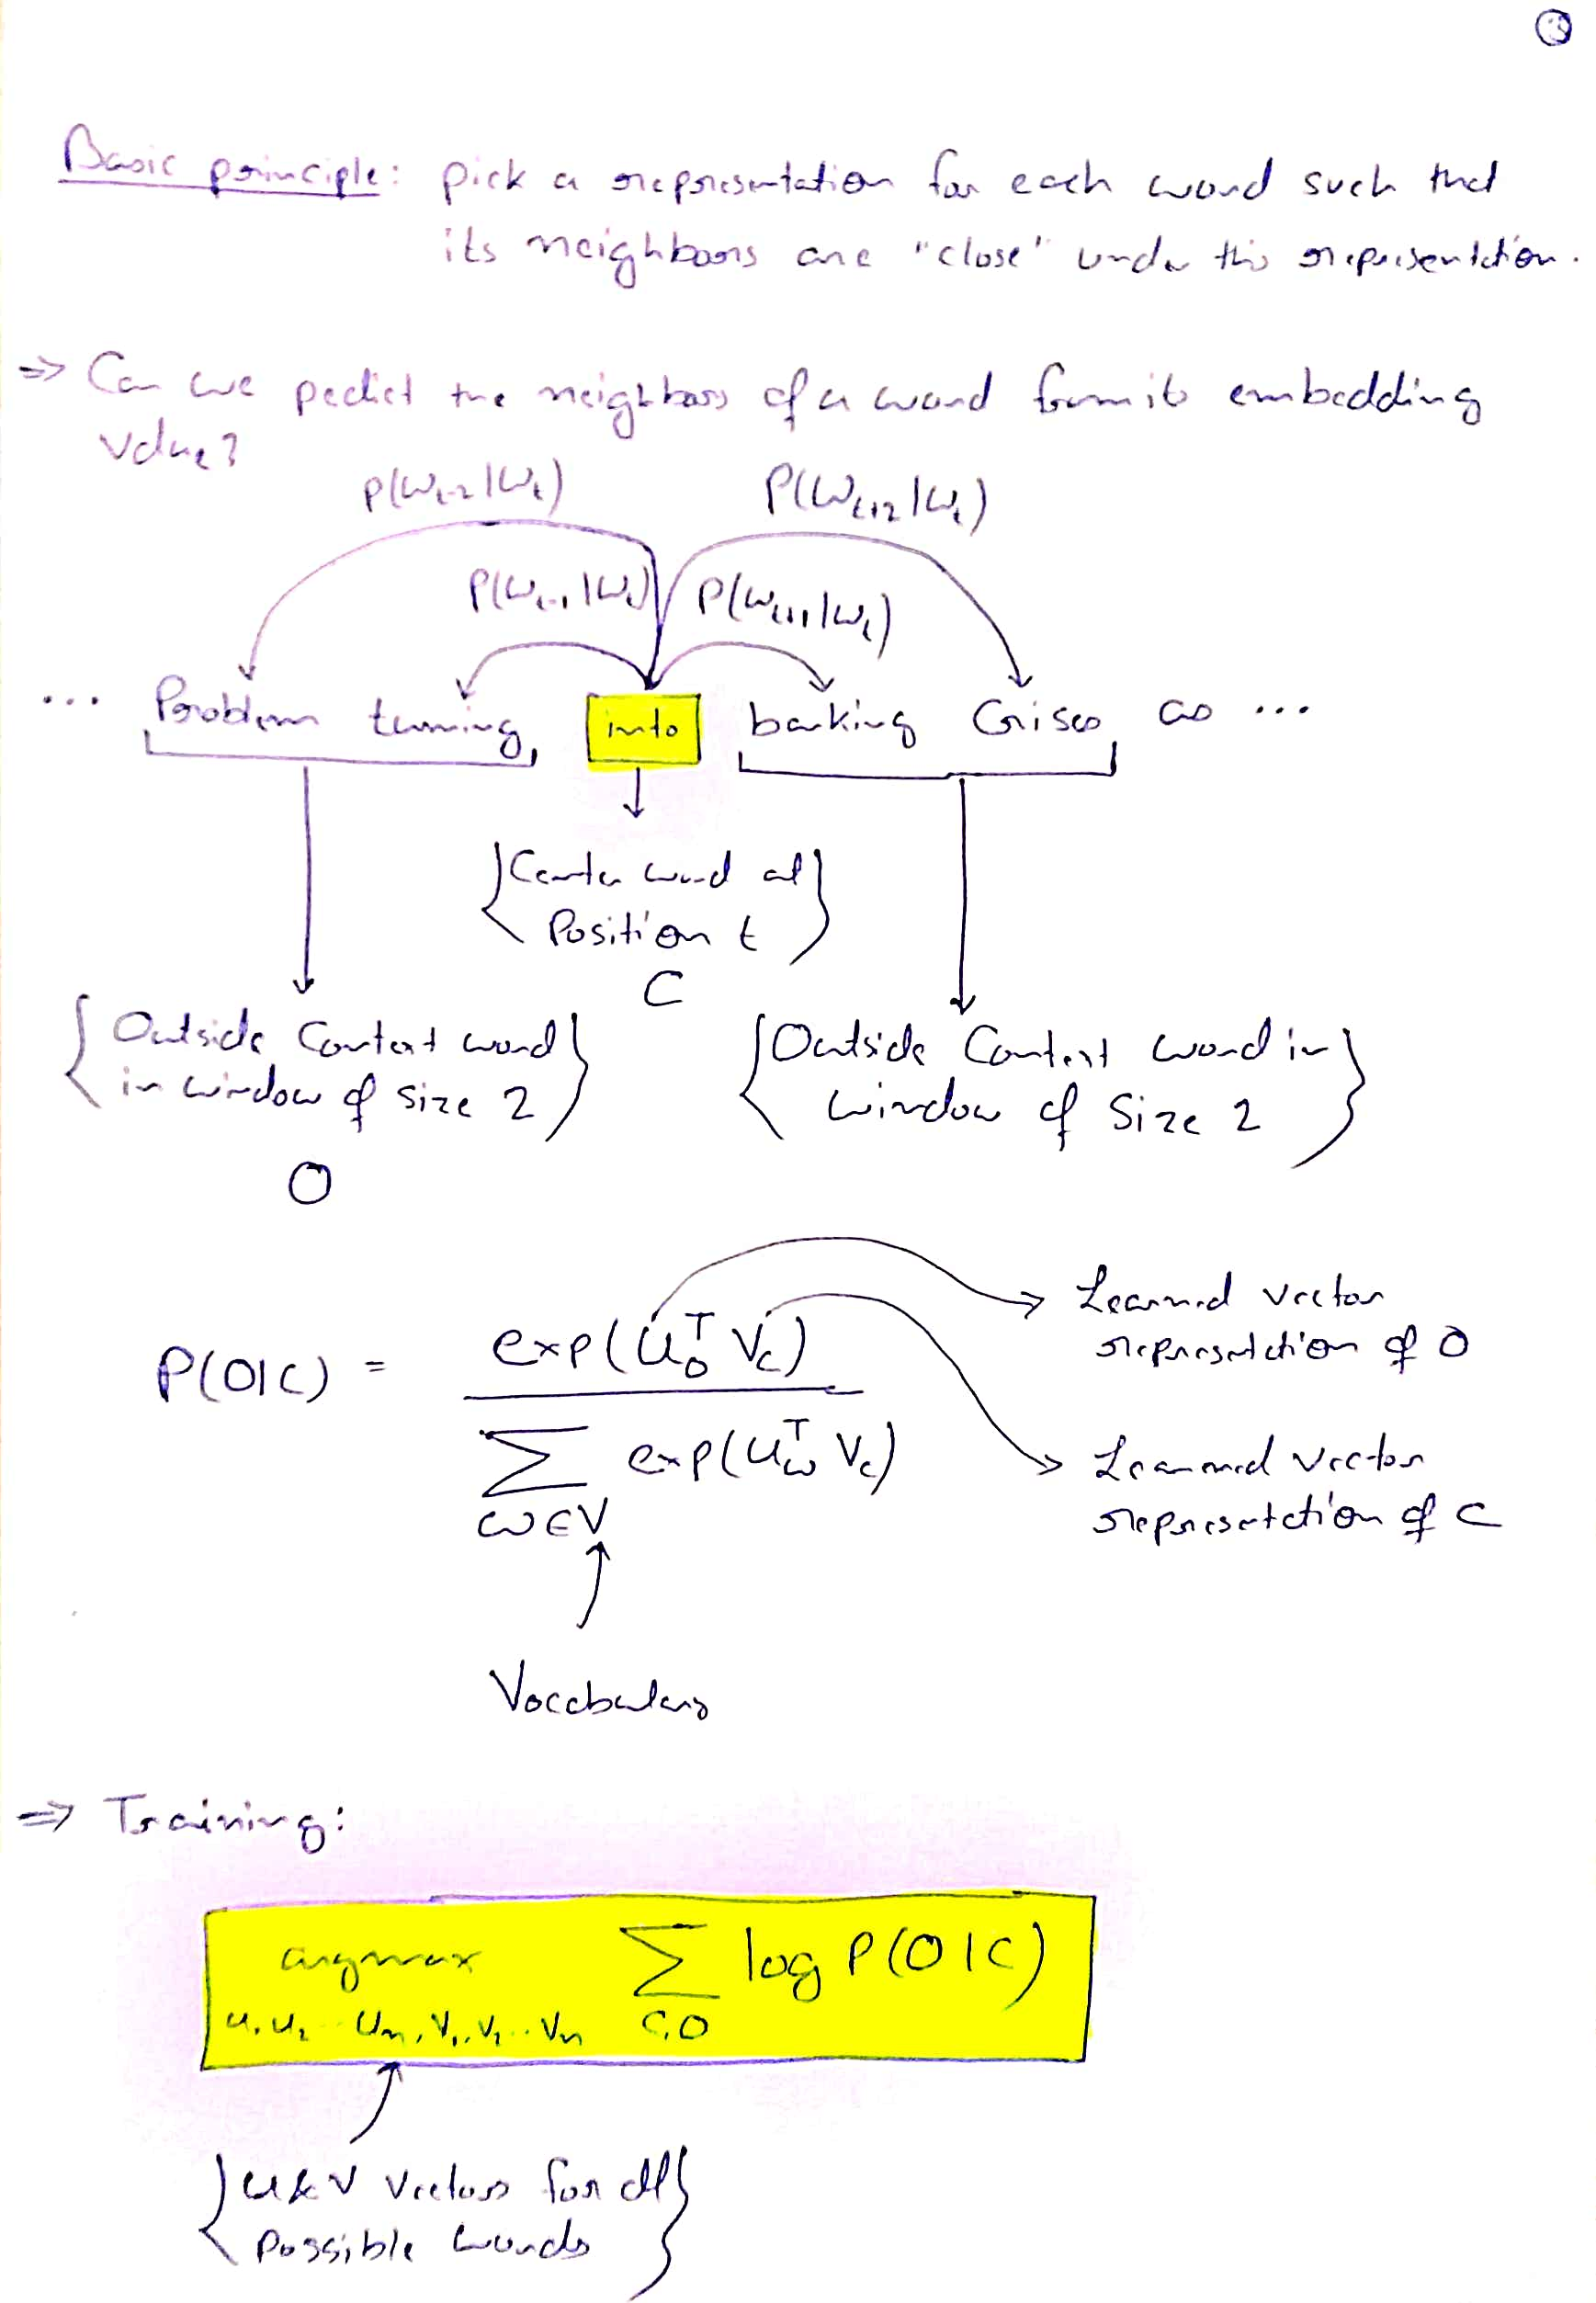 Basic principle: pick a representation for each word such that
its neighbors are "close" under this representation.
⇒ Can we pedict the neighbors of a word from its embedding
value?
P(W_{t-2}|W_t) P(W_{t+2}|W_t)
P(W_{t-1}|W_t) P(W_{t+1}|W_t)
... Problem turning into banking Crises as ...
{Center word at
Position t}
C
{Outside Context word
in window of size 2}
O
{Outside Context word in
window of Size 2}
P(O|C) = exp(U_O^T V_C) / Σ_{w∈V} exp(U_w^T V_C)
Learned vector
representation of O
Learned vector
representation of C
Vocabulary
⇒ Training:
argmax Σ log P(O|C)
u_1 u_2 ... u_n, v_1, v_2 ... v_n C,O
{u & v vectors for all
Possible words}